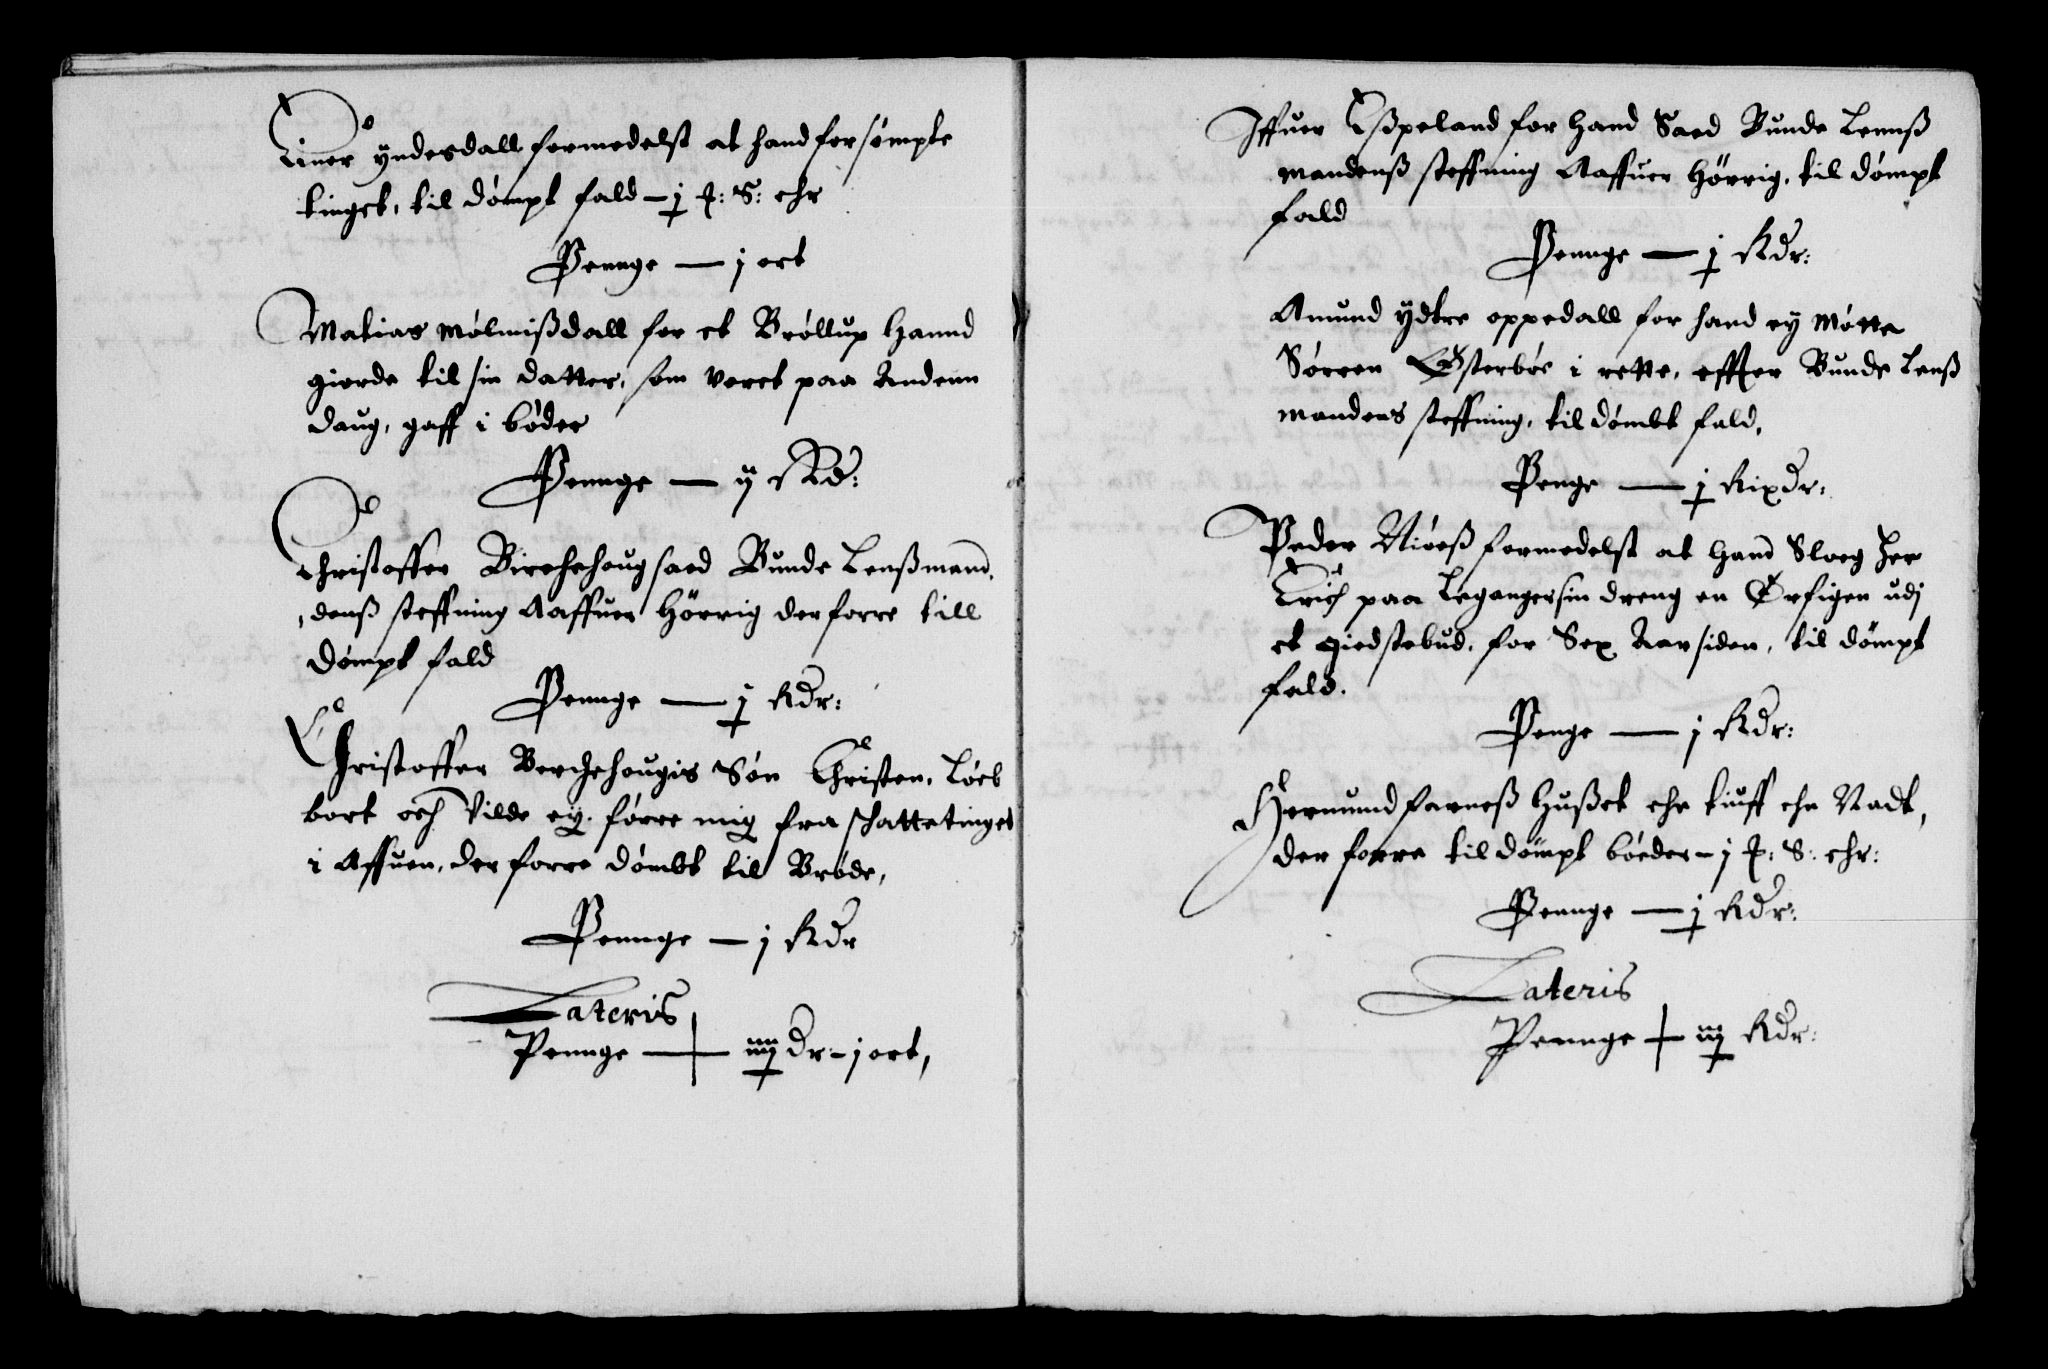 Einer yndesdall formedelst at hand forsømpte
tinget, til dømpt fald - j p: S: ehr
Pennge — j ort
Matias Mølmißdall for et Brøllup Hannd
giorde til sin datter, som veret paa Andenn
daug, gaff i bøder
Pennge — ij Rd:
Christoffer Birchehoug saed Bunde Lenßmand,
denß steffning Aaffuer Hørrig derforre till
dømpt fald
Pennge — j Rdr:
Christoffer Berchehougis Søn Christen, Løeb
bort och Vilde ey, førre mig fra schattetinget
i Affuen, der forre dømbt til Brøde,
Pennge — j Rdr
Lateris
Pennge — iiiij dr - j ort,
Iffuer Eßpeland for Hand Saed Bunde Lennß
mandenß steffning Aaffuer Hørrig, til dømpt
fald
Pennge — j Rdr:
Amund ydtre oppedall for hand ey Møtte
Sørren Østerbøe i rette, effter Bunde Lenß
mandens steffning, til dømbt fald,
Penge — j Rixdr:
Peder Niøeß formedelst at Hand Sloeg Her
Erich paa Leganger sin dreng en Ørfigen udj
et giedstebud, for Sex Aar siden, til dømpt
fald.
Penge — j Rdr:
Hermund farneß Hußet ehr tiuff ehr Nadt,
der forre til dømpt bøeder - j p: S: ehr:
Pennge — j Rdr:
Lateris
Pennge — iiij Rdr: